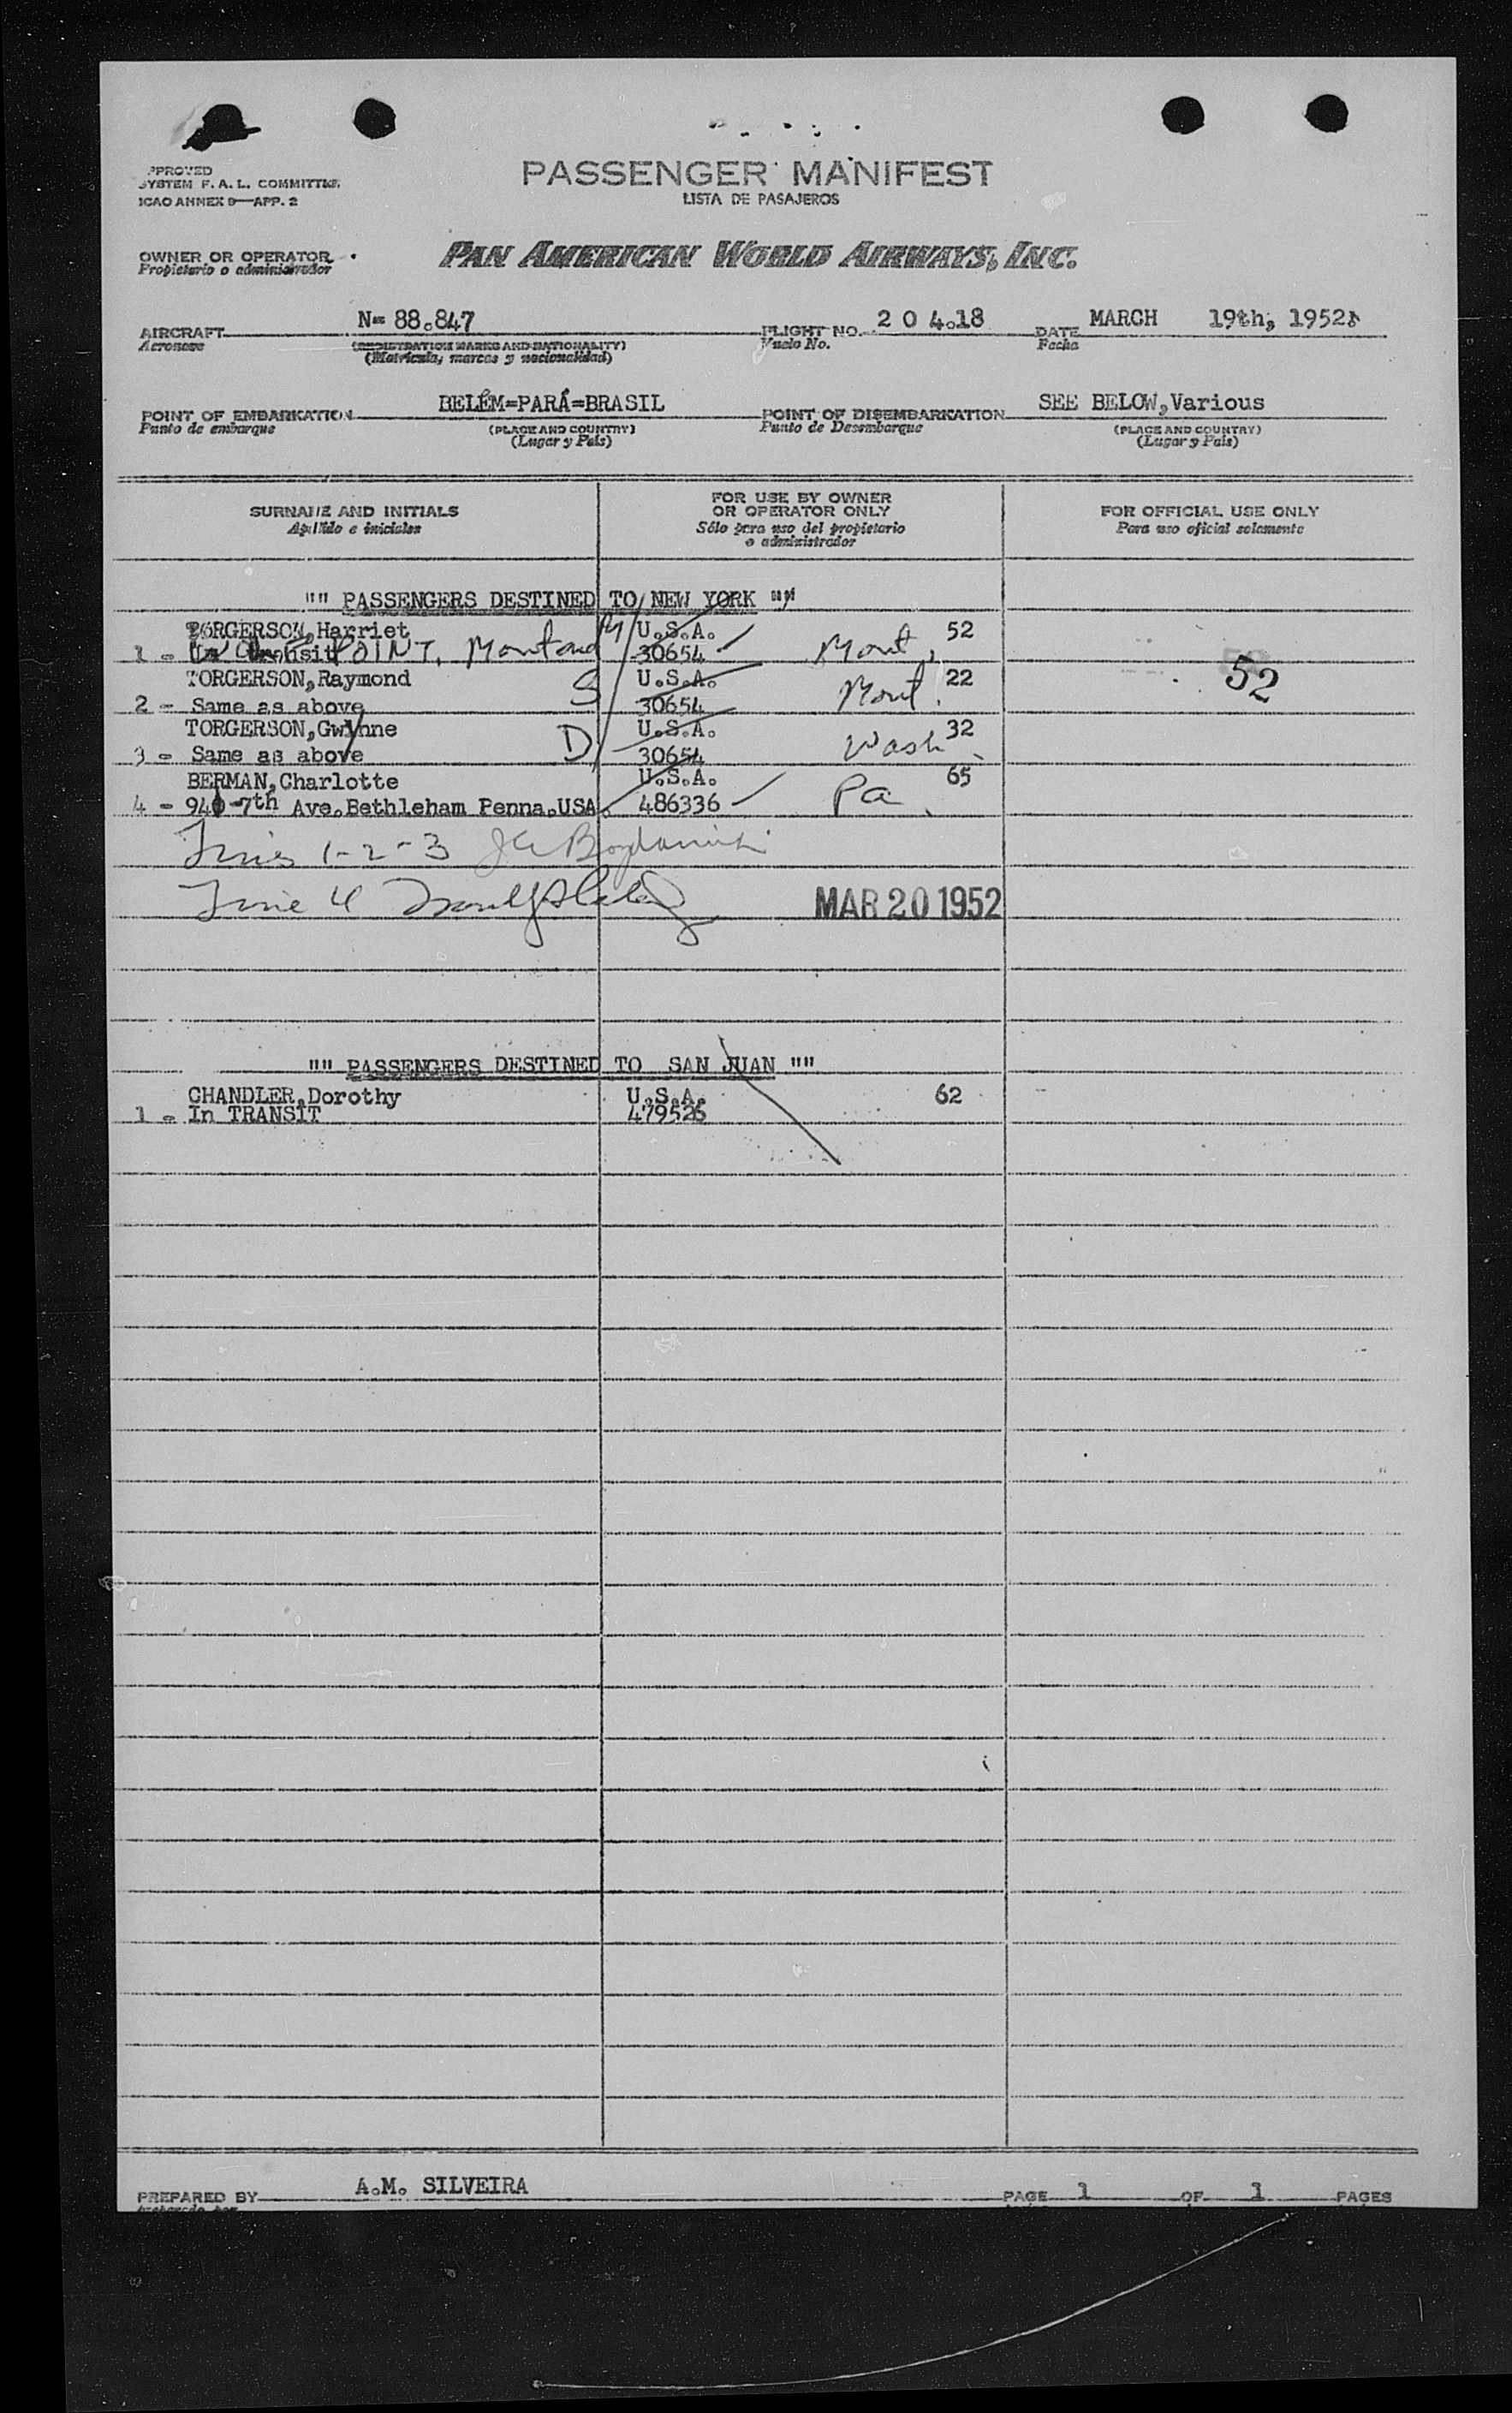 PASSENGER MANIFEST
LISTA DE PASAJEROS
APPROVED
SYSTEM F. A. L. COMMITTEE
ICAO ANNEX 9—APP. 2
OWNER OR OPERATOR
Propietario o administrador
PAN AMERICAN WORLD AIRWAYS, INC.
AIRCRAFT N= 88.847 FLIGHT NO. 2 0 4.18 DATE MARCH 19th, 1952
Aeronave (REGISTRATION MARKS AND NATIONALITY) Vuelo No. Fecha
(Matrícula, marcas y nacionalidad)
POINT OF EMBARKATION BELÉM=PARÁ=BRASIL POINT OF DISEMBARKATION SEE BELOW,Various
Punto de embarque (PLACE AND COUNTRY) Punto de Desembarque (PLACE AND COUNTRY)
(Lugar y País) (Lugar y País)
SURNAME AND INITIALS
Apellido e iniciales
FOR USE BY OWNER
OR OPERATOR ONLY
Sólo para uso del propietario
o administrador
FOR OFFICIAL USE ONLY
Para uso oficial solamente
"" PASSENGERS DESTINED TO NEW YORK ""
TORGERSON,Harriet M U.S.A. 52
1 - In Transit POINT, Montana 30654 Mont.
TORGERSON,Raymond S U.S.A. 22
2 - Same as above 30654 Mont. 52
TORGERSON,Gwynne D U.S.A. 32
3 - Same as above 30654 Wash
BERMAN,Charlotte U.S.A. 65
4 - 940-7th Ave.Bethleham Penna.USA. 486336 Pa.
1-2-3
4
MAR 20 1952
"" PASSENGERS DESTINED TO SAN JUAN ""
CHANDLER,Dorothy U.S.A. 62
1 - In TRANSIT 479526
PREPARED BY A.M. SILVEIRA PAGE 1 OF 1 PAGES